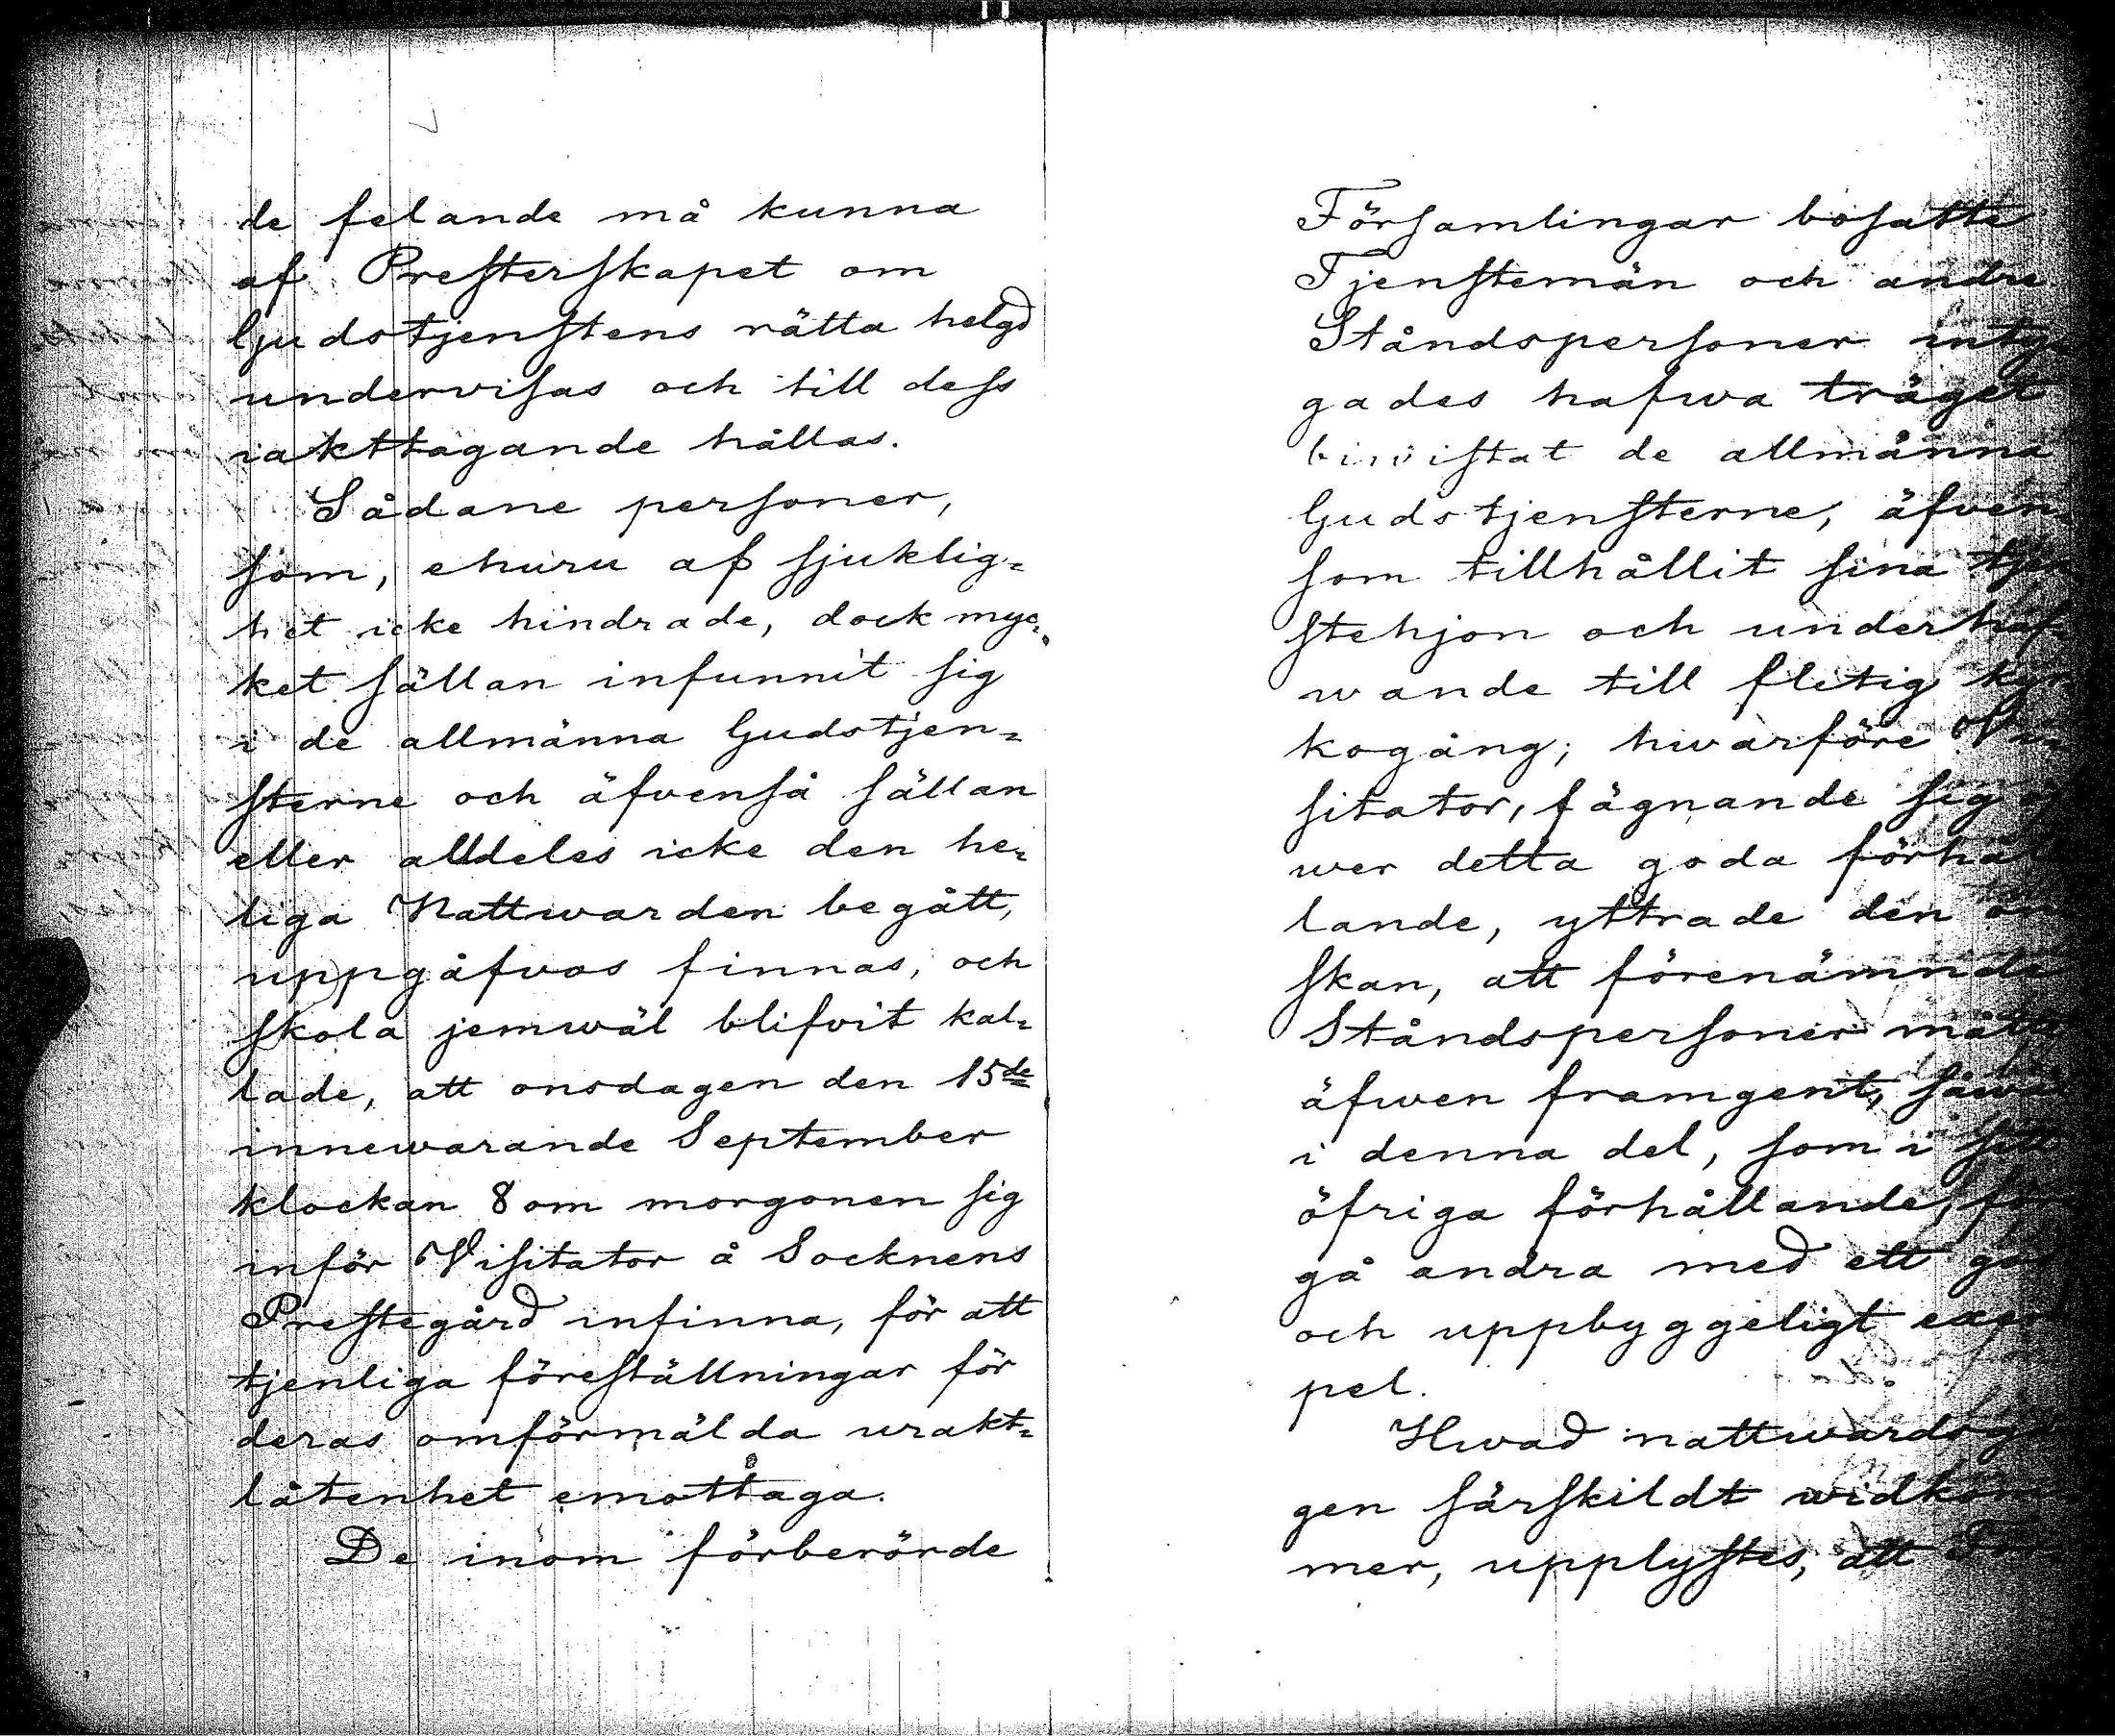 de felande må kunna
af Presterskapet om
Gudstjenstens rätta helgd
undervisas och till dess
iakttagande hållas.
Sådane personer,
som, ehuru af sjuklig=
het icke hindrade, dock myc=
ket sällan infunnit sig
i de allmänna Gudstjen=
sterne och äfvenså sällan
eller alldeles icke den he=
liga Nattwarden begått,
uppgåfvos finnas, och
skola jemwäl blifvit kal=
lade, att onsdagen den 15de
innewarande September
klockan 8 om morgonen sig
inför Visitator å Socknens
Prestegård infinna, för att
tjenliga föreställningar för
deras omförmälda urakt=
låtenhet emottaga.
De inom förberörde
Församlingar bosatte
Tjenstemän och andre
Ståndspersoner
gades hafwa träget
biwistat de allmänna
Gudstjensterne, äfven
som tillhållit sina
stehjon och underhaf=
wande till flitig
kogång; hwarföre
sitator, fägnande sig
wer detta goda
lande, yttrade den
skan, att förenämnde
Ståndspersoner
äfwen framgent,
i denna del, som i
öfriga förhållande,
gå andra med ett
och uppbyggeligt
pel.
Hwad
gen särskildt
mer, upplystes, att